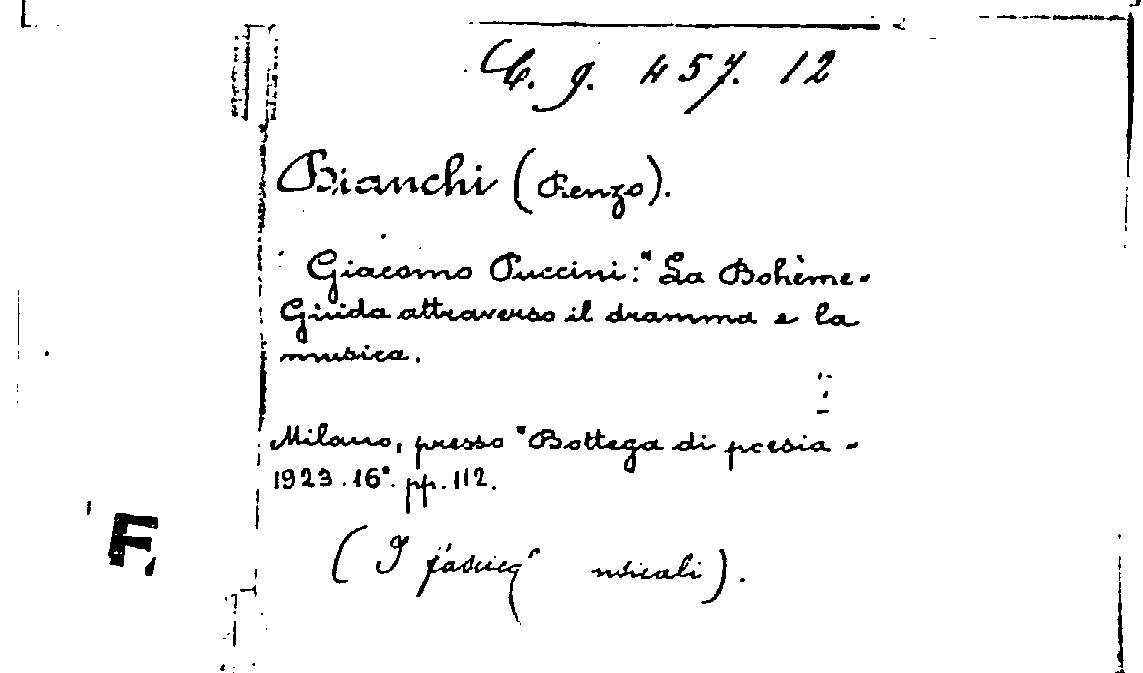 C. g. 457. 12
Bianchi (Renzo).
Giacomo Puccini: "La Bohème"
Guida attraverso il dramma e la
musica.
Milano, presso "Bottega di poesia"
1923. 16°. pp. 112.
(I
F.